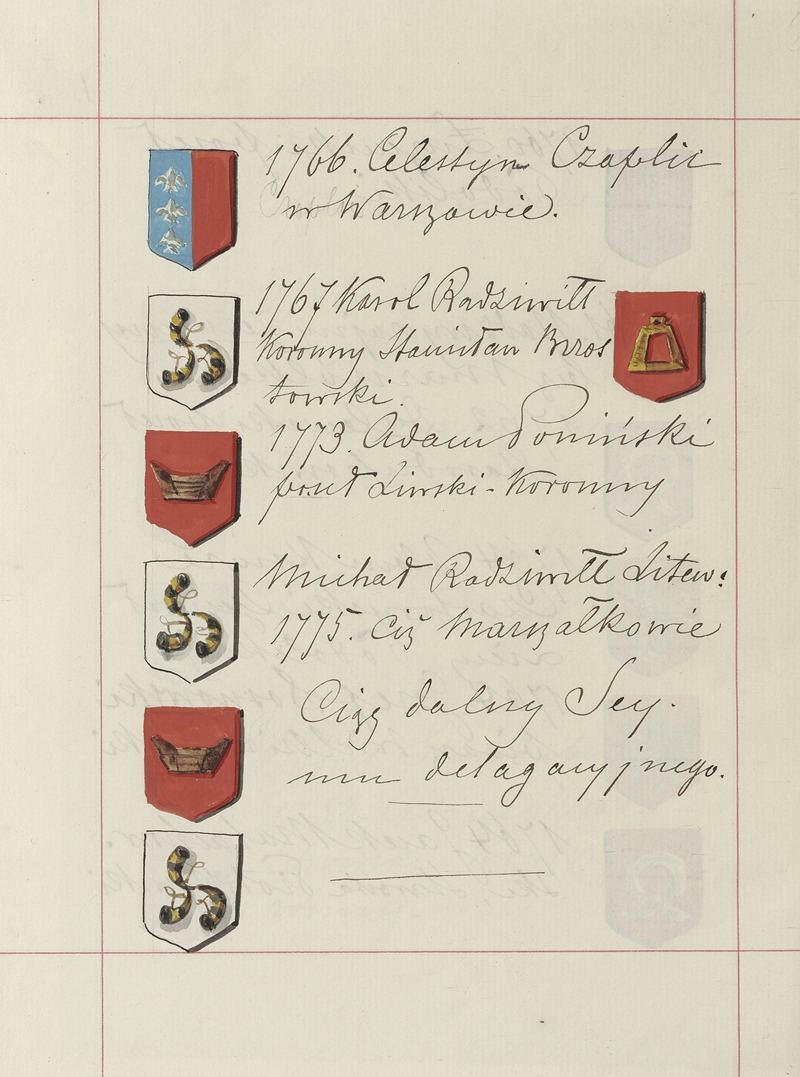 1766. Celestyn Czaplic
w Warszawie.
1767 Karol Radziwiłł
Koronny Stanisław Brzos
towski.
1773. Adam Poniński
poseł Liwski - Koronny
Michał Radziwiłł Litew:
1775. Ciż Marszałkowie
Ciąg dalszy Sey.
mu delagacyjnego.